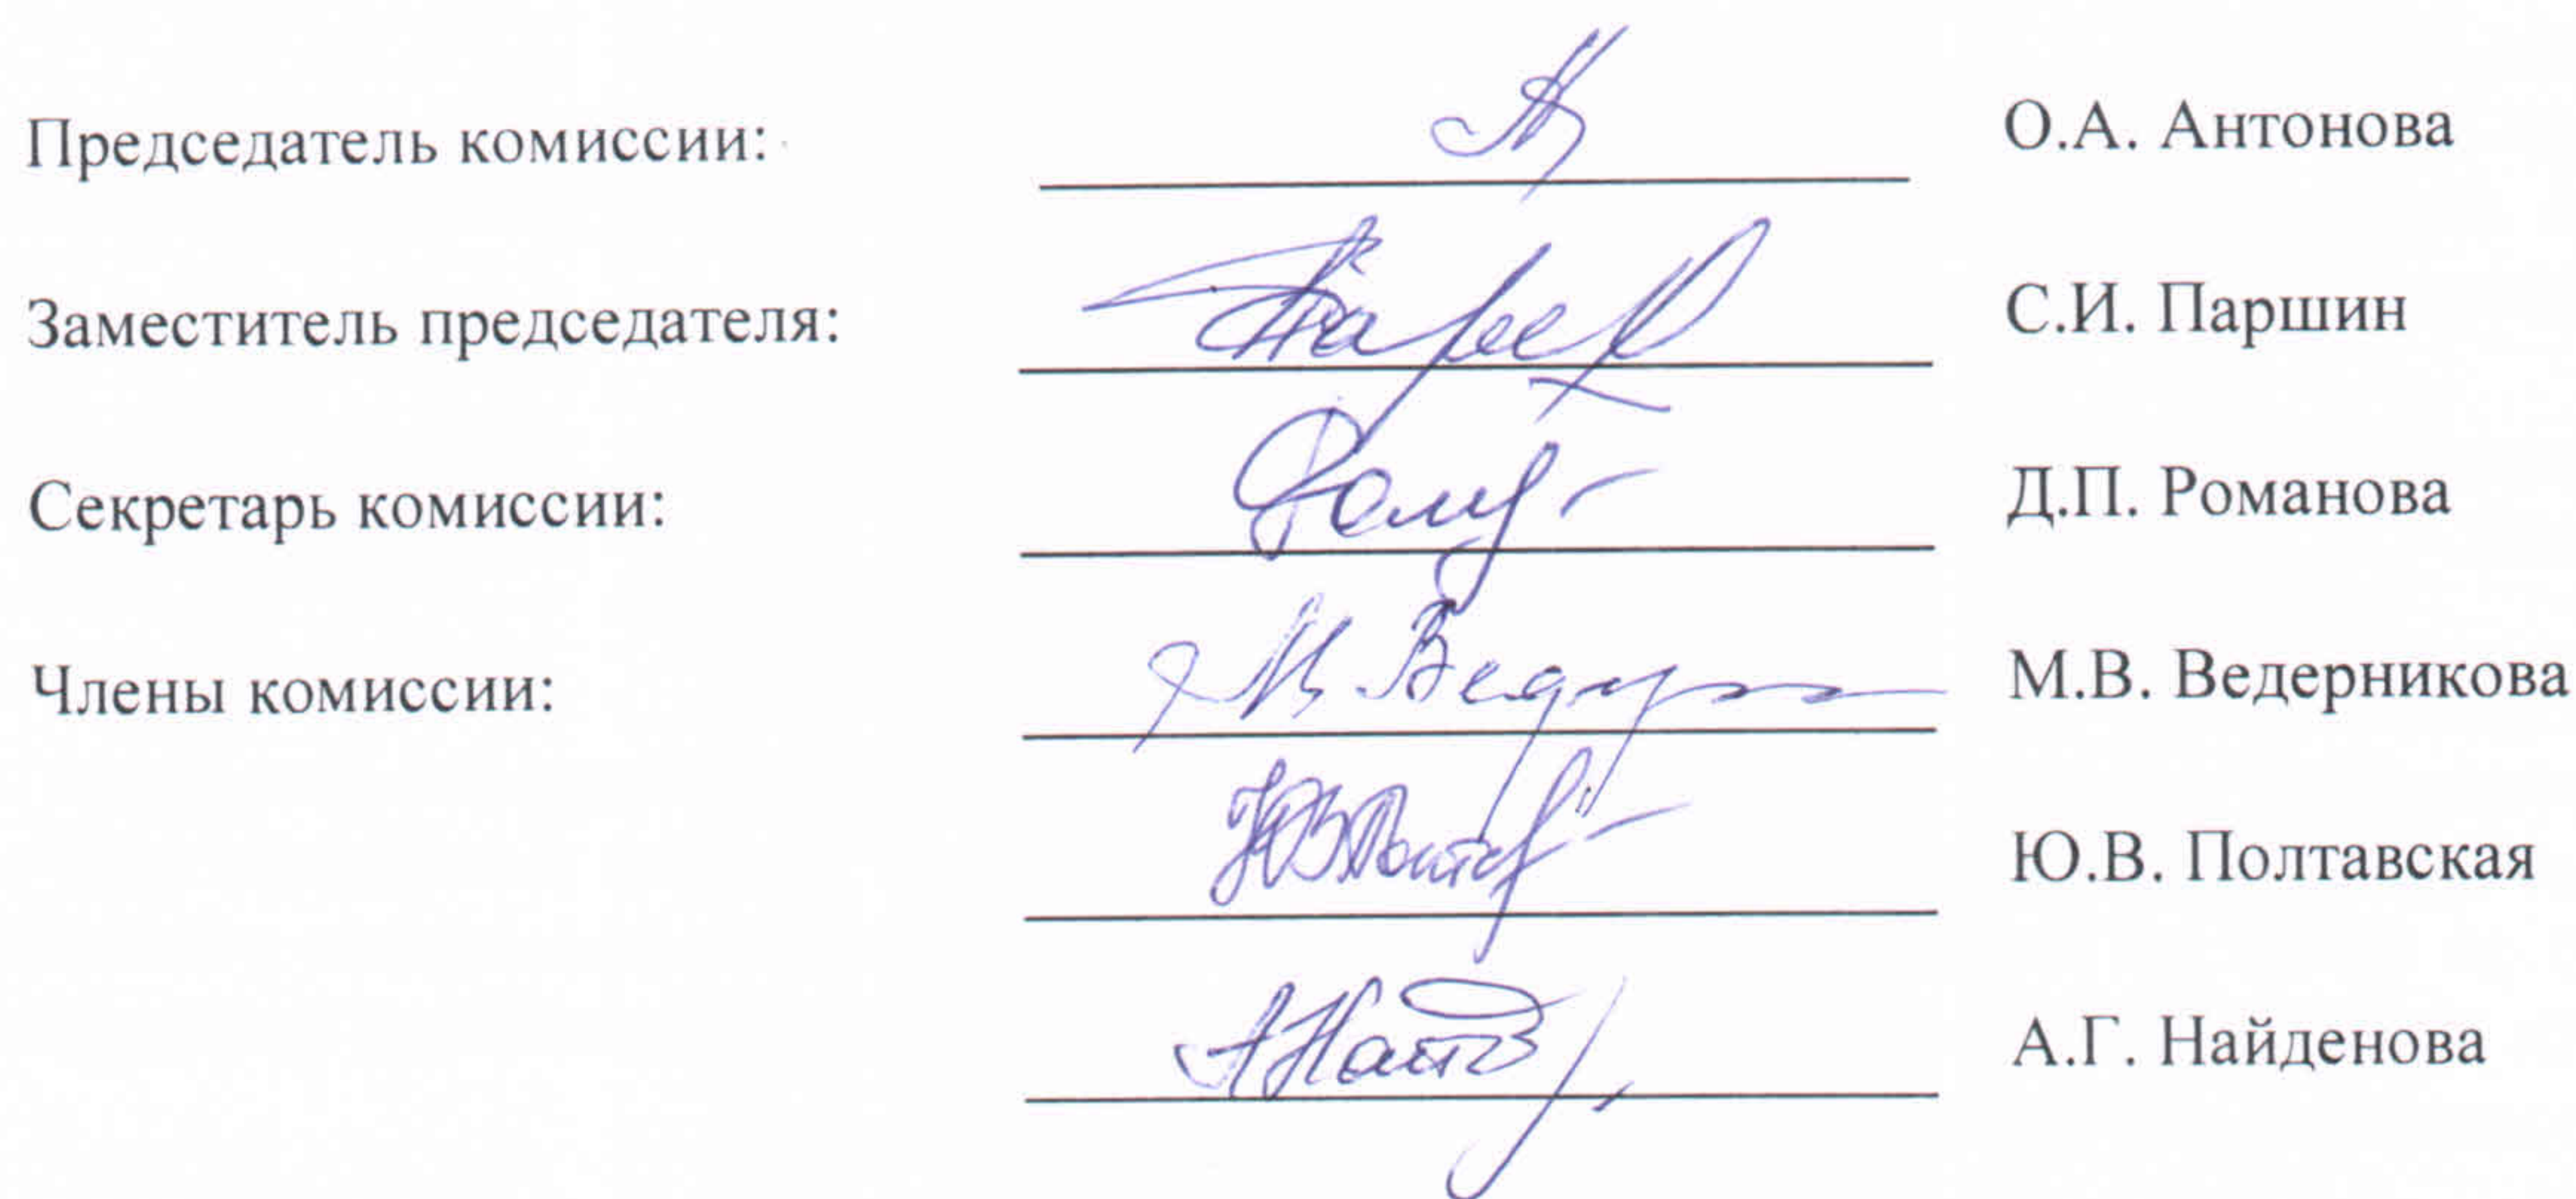 Председатель комиссии: О.А. Антонова
Заместитель председателя: С.И. Паршин
Секретарь комиссии: Д.П. Романова
Члены комиссии: М.В. Ведерникова
Ю.В. Полтавская
А.Г. Найденова